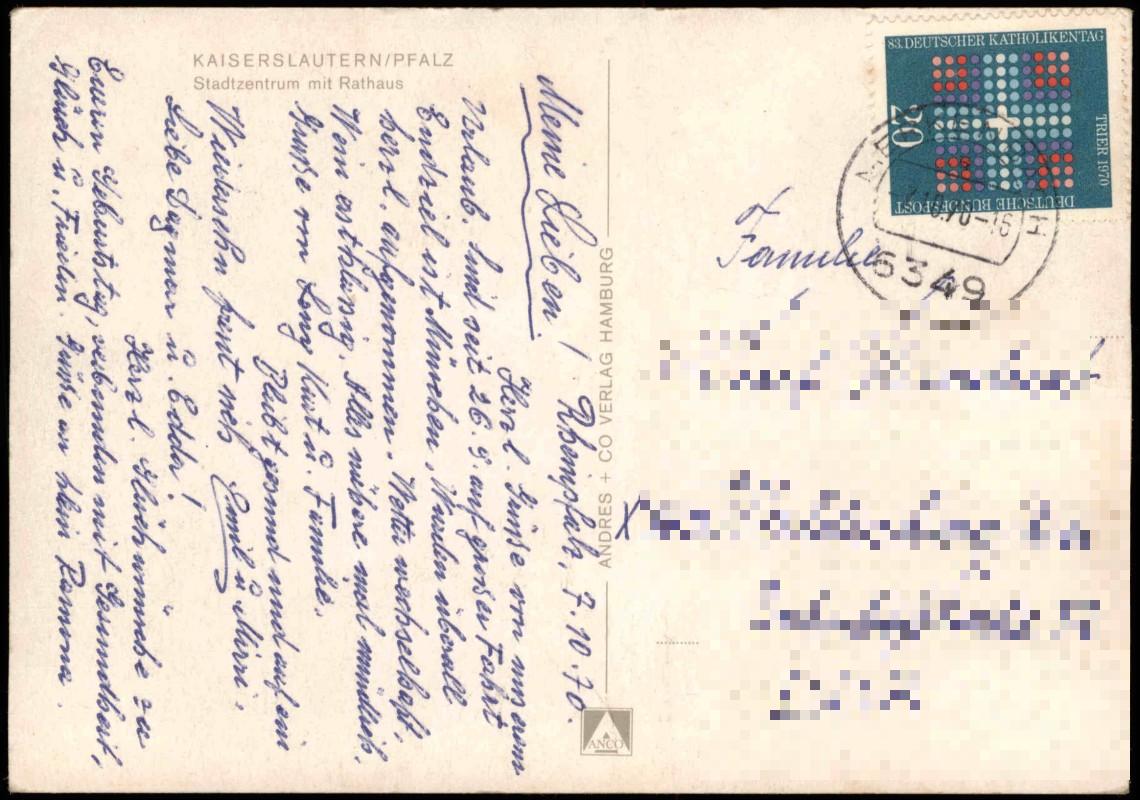 KAISERSLAUTERN/PFALZ
Stadtzentrum mit Rathaus
83. DEUTSCHER KATHOLIKENTAG
TRIER 1970
DEUTSCHE BUNDESPOST
20
10.70-16
6349
Familie
ANDRES + CO VERLAG HAMBURG
ANCO
Meine Lieben! Rheinpfalz, 7.10.70.
Herzl. Grüsse von unserm
Urlaub. Sind seit 26.9. auf grosser Fahrt
Endziel ist München. Wurden überall
herzl. aufgenommen. Wetter wechselhaft,
Wein erstklassig. Alles nähere mal mündlich.
Grüsse von Kurt u. Familie.
Bleibt gesund und auf ein
Wiedersehn freut sich Emil u. Mimi.
Liebe Dagmar u. Edda!
Herzl. Glückwünsche zu
Eurem Geburtstag, verbunden mit Gesundheit,
Glück u. Frieden. Grüsse an klein Ramona.